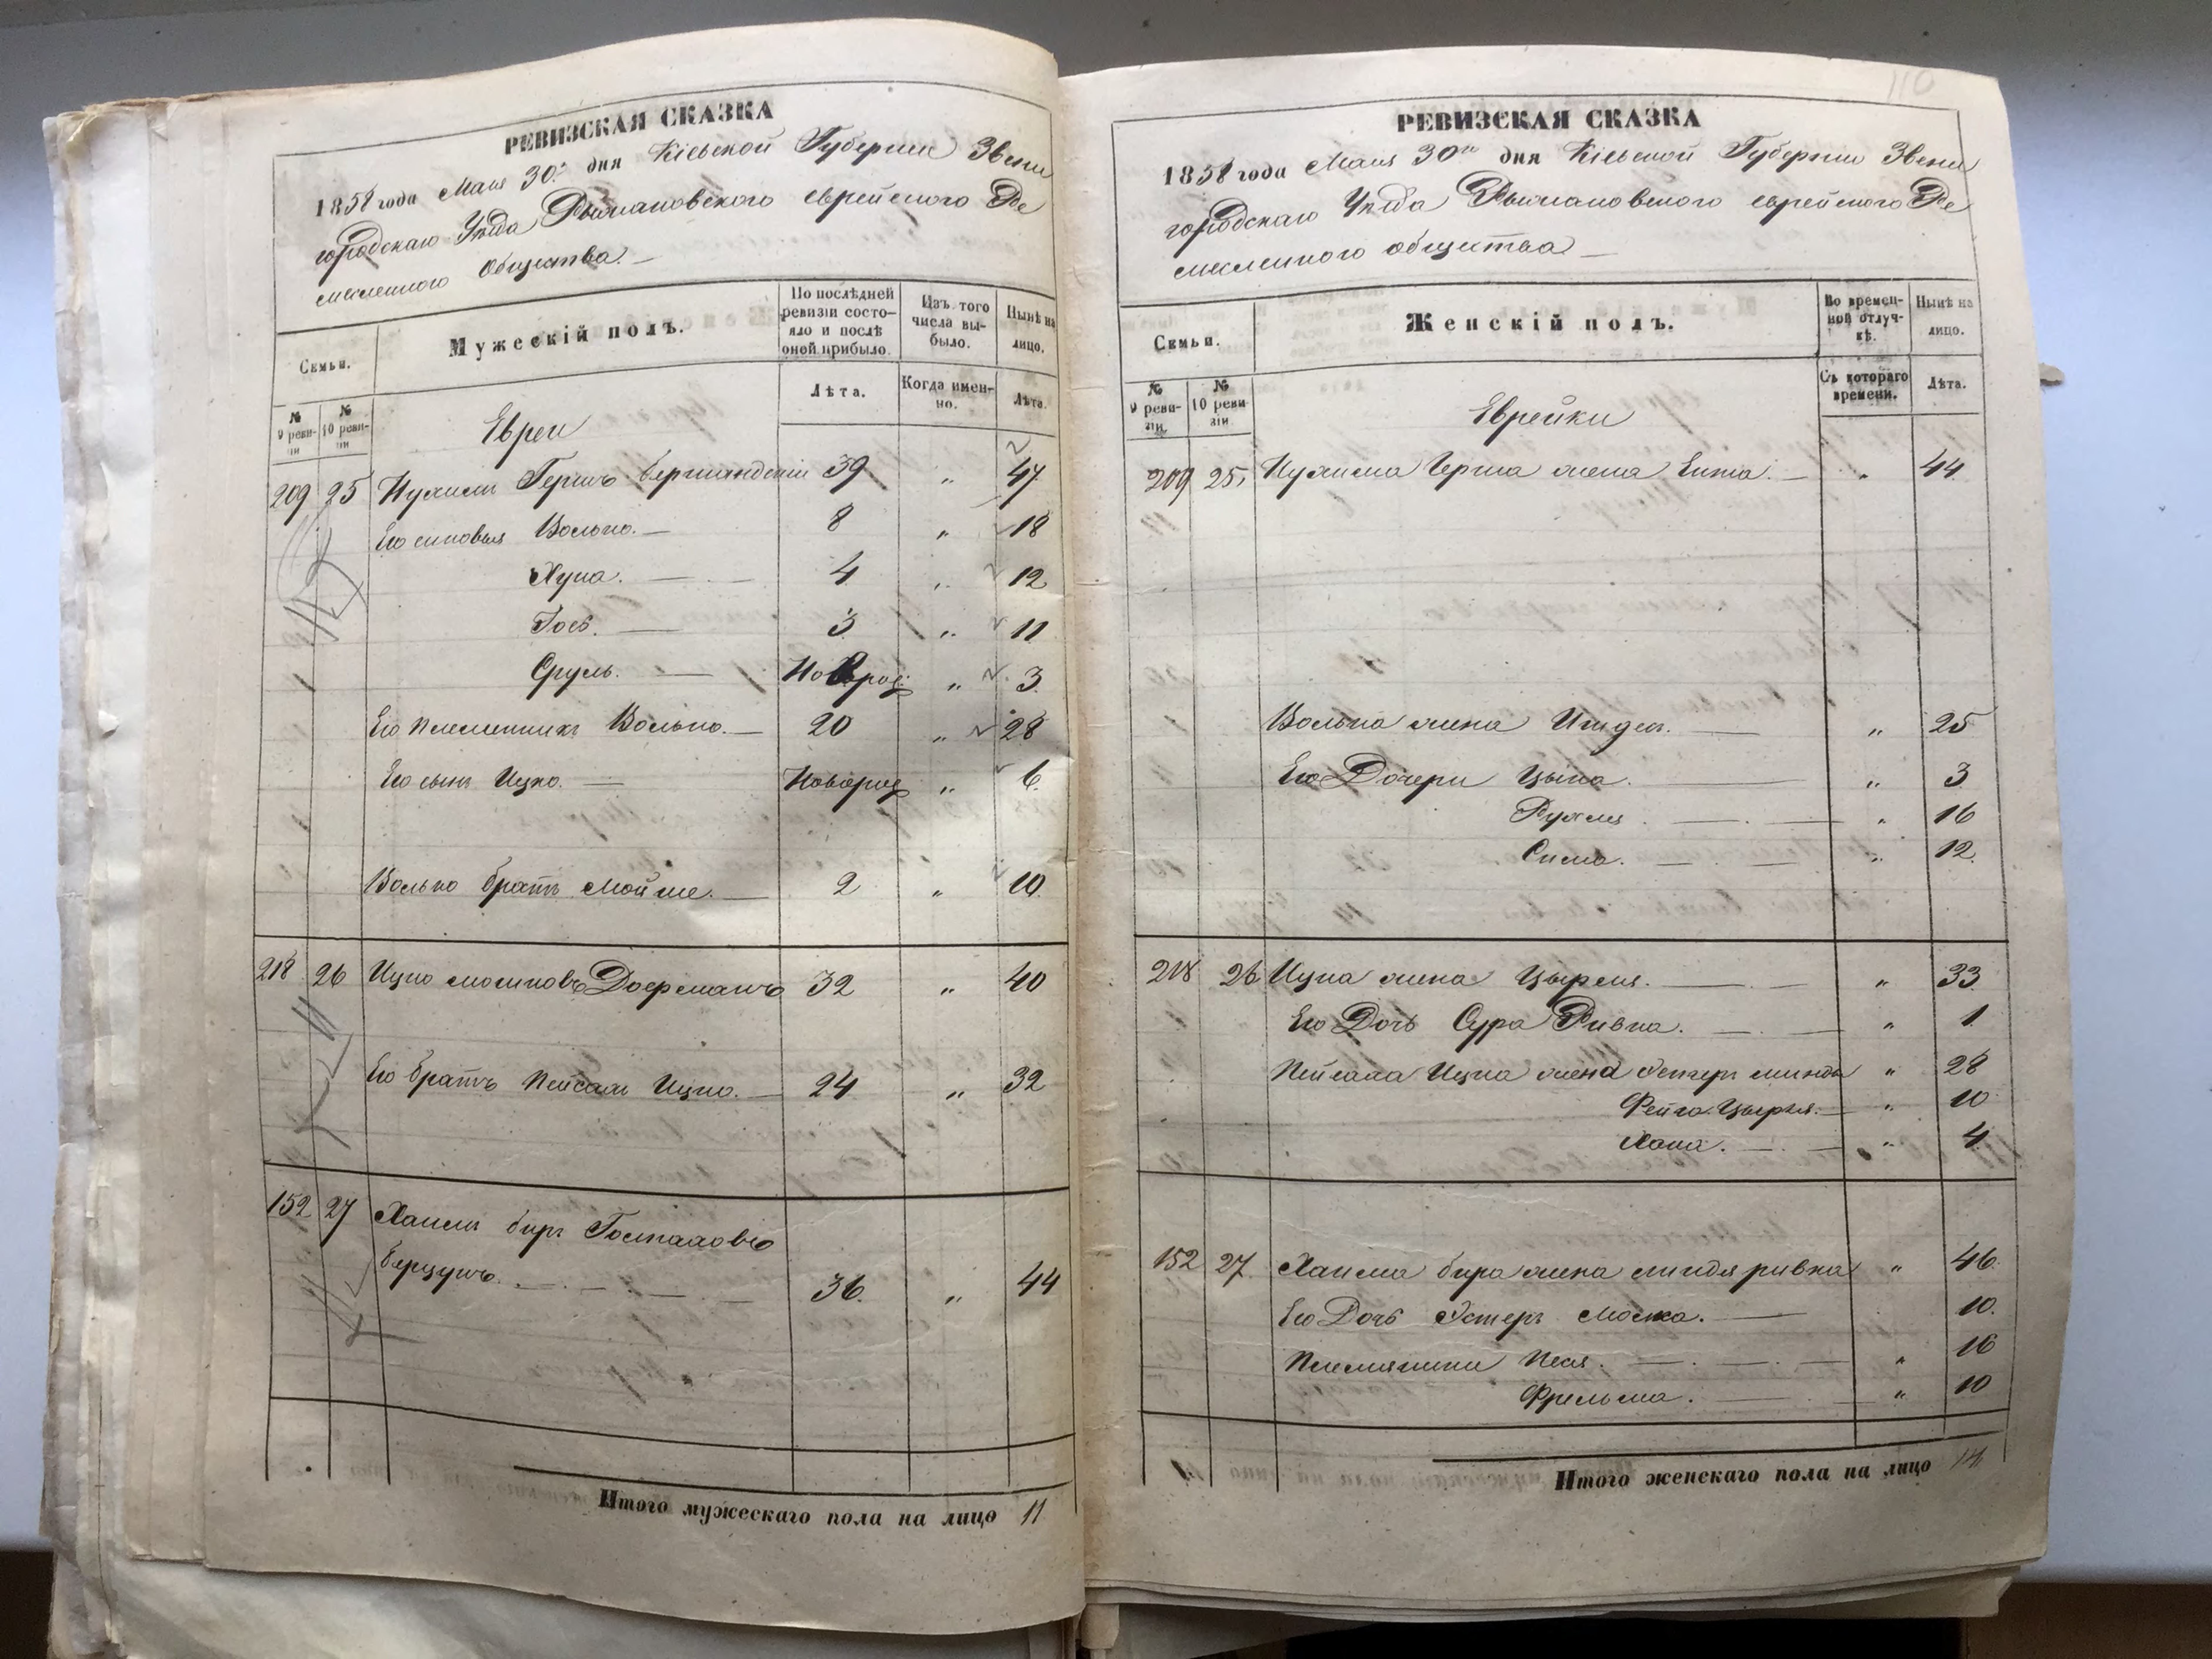 РЕВИЗСКАЯ СКАЗКА
1858 года Мая 30го дня Кіевской Губерніи Звени
городскаго Уѣзда Рыжановского еврейского Ре
месленного Общества. —
Семьи.
Мужескій полъ.
По послѣдней ревизіи состо-
яло и послѣ
оной прибыло.
Изъ того
числа вы-
было.
Нынѣ на
лицо.
№
9 реви-
зіи
№
10 реви-
зіи
Лѣта.
Когда имен-
но.
Лѣта.
Евреи
209 25 Нухимъ Гершъ 39 „ 47
Его сыновья Волько. — 8 „ 18
Хуна. — 4 „ 12
Іось. — 3 „ 11
Сруль. — Новорож „ 3.
Его племенникъ Волько. — 20 „ 28
Его сынъ Ицко. — Новорож „ 6.
Волько братъ Мойше. — 2 „ 10.
218 26 Ицко Мошковъ Дофманъ 32 „ 40
Его братъ Пейсахъ Ицко. — 24 „ 32
152 27 Хаимъ биръ
36. „ 44
Итого мужескаго пола на лицо 11
110
РЕВИЗСКАЯ СКАЗКА
1858 года Мая 30го дня Кіевской Губерніи Звени
городскаго Уѣзда Рыжановского еврейского Ре
месленного общества —
Семьи.
Женскій полъ.
Во времен-
ной отлуч-
кѣ.
Нынѣ на
лицо.
№
9 реви-
зіи
№
10 реви-
зіи
Съ котораго
времени.
Лѣта.
Еврейки
209 25 Нухима Герша жена Ента. — „ 44
Волька жена — „ 25
Его Дочери Цыпа. — „ 3
Рухля. — „ 16
Сима. — „ 12.
218 26 Ицка жена Цыреля. — „ 33
Его Дочь Сура Ривка. — „ 1.
Пейсаха Ицка жена Эстеръ Минды „ 28
Фейга Цырля. — „ 10
Хана. — „ 4.
152 27. Хаима бира жена Миндя Ривка „ 46.
Его Дочь Эстеръ — 10.
Племяници Песя. — „ 16
— „ 10
Итого женскаго пола на лицо 14